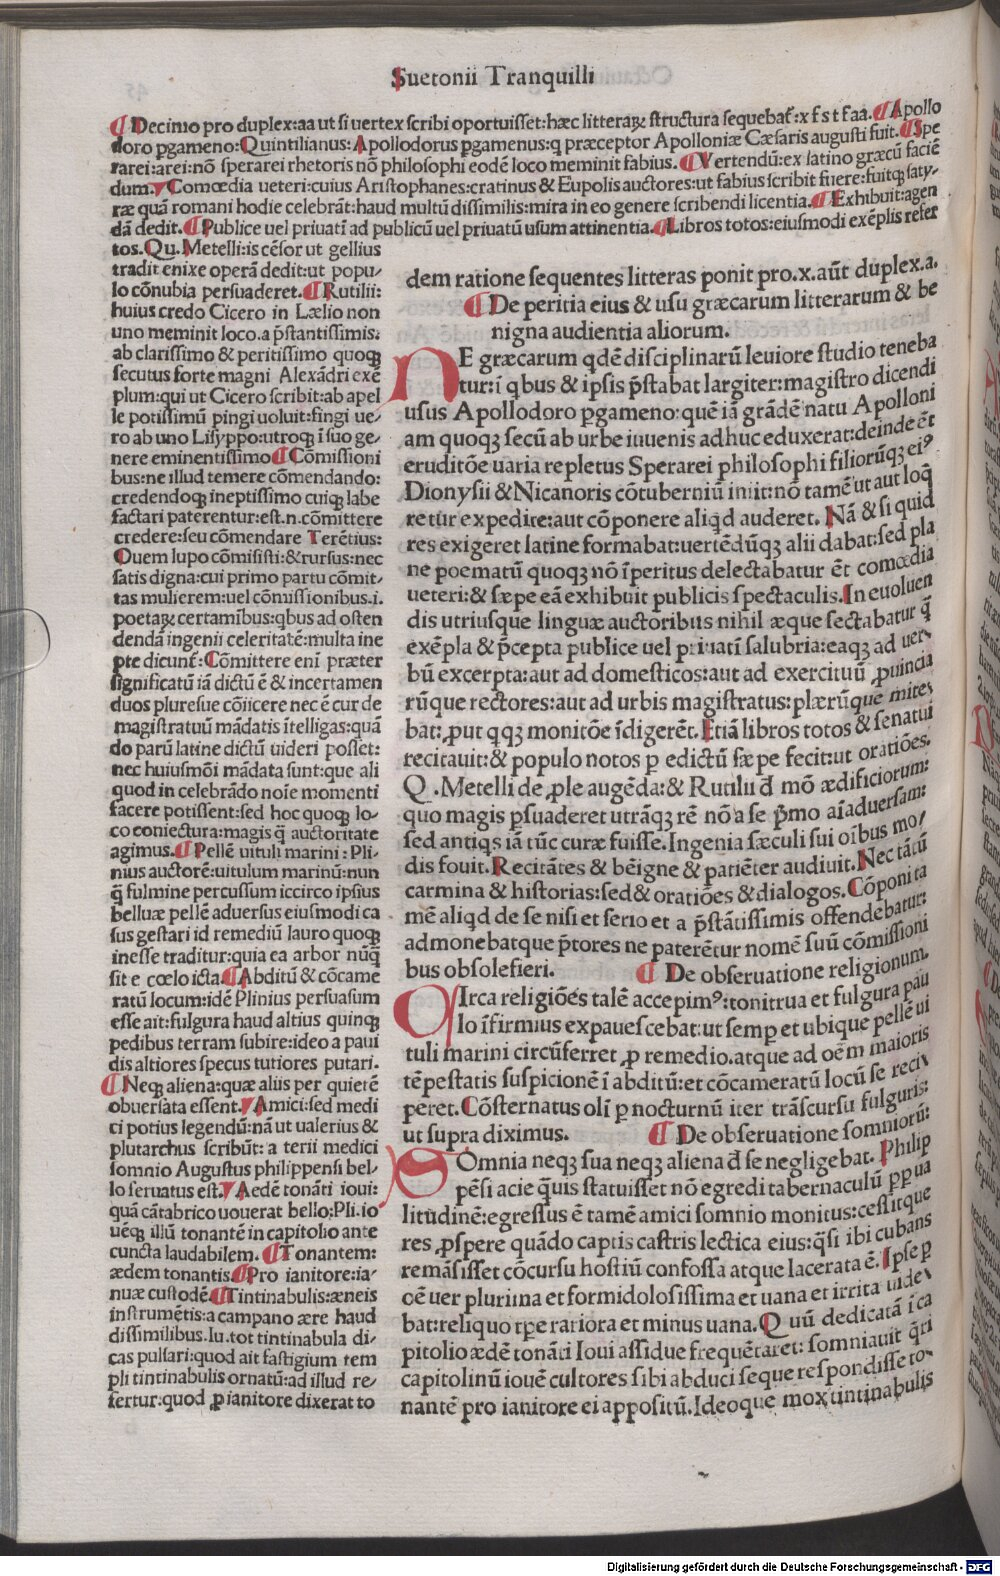 Suetonii Tranquilli
¶ Decimo pro duplex:aa ut si uertex scribi oportuisset:hæc litteraꝝ structura sequebat̃:x f s t f aa.¶ Apollo
doro ꝑgameno:Quintilianus:Apollodorus ꝑgamenus:q præceptor Apolloniæ Cæsaris augusti fuit.¶ Spe
rarei:arei:nõ sperarei rhetoris nõ philosophi eodẽ loco meminit fabius.¶ Vertendũ:ex latino græcũ faciẽ
dum.¶ Comœdia ueteri:cuius Aristophanes:cratinus & Eupolis auctores:ut fabius scribit fuere:fuitqꝫ saty-
ræ quã romani hodie celebrãt:haud multũ dissimilis:mira in eo genere scribendi licentia.¶ Exhibuit:agen
dã dedit.¶ Publice uel priuati ad publicũ uel priuatũ usum attinentia.¶ Libros totos:eiusmodi exẽplis refer
tos.Qu.Metelli:is cẽsor ut gellius
tradit enixe operã dedit:ut popu-
lo cõnubia persuaderet.¶ Rutilii:
huius credo Cicero in Lælio non
uno meminit loco.a p̃stantissimis:
ab clarissimo & peritissimo quoqꝫ
secutus forte magni Alexãdri exẽ
plum:qui ut Cicero scribit:ab apel
le potissimũ pingi uoluit:fingi ue-
ro ab uno Lisyppo:utroqꝫ ĩ suo ge-
nere eminentissimo¶ Cõmissioni
bus:ne illud temere cõmendando:
credendoqꝫ ineptissimo cuiqꝫ labe
factari paterentur:est.n.cõmittere
credere:seu cõmendare Terẽtius:
Quem lupo cõmisisti:& rursus:nec
satis digna:cui primo partu cõmit-
tas mulierem:uel cõmissionibus.i.
poetaꝝ certamibus:qbus ad osten
dendã ingenii celeritatẽ:multa ine
pte dicunt̃:Cõmittere eni præter
significatũ iã dictũ ẽ & incertamen
duos pluresue cõiicere nec ẽ cur de
magistratuũ mãdatis ĩtelligas:quã
do parũ latine dictũ uideri posset:
nec huiusmõi mãdata sunt:que ali
quod in celebrãdo noie momenti
facere potissent:sed hoc quoqꝫ lo-
co coniectura:magis q̃ auctoritate
agimus.¶ Pellẽ uituli marini:Pli-
nius auctorẽ:uitulum marinũ:nun
q̃ fulmine percussum iccirco ipsius
belluæ pellẽ aduersus eiusmodi ca
sus gestari id remediũ lauro quoqꝫ
inesse traditur:quia ea arbor nũq̃
sit e cœlo icta.¶ Abditũ & cõcame
ratũ locum:idẽ Plinius persuasum
esse ait:fulgura haud altius quinqꝫ
pedibus terram subire:ideo a paui
dis altiores specus tutiores putari.
¶ Neqꝫ aliena:quæ aliis per quietẽ
obuersata essent.¶ Amici:sed medi
ci potius legendũ:nã ut ualerius &
plutarchus scribũt:a terii medici
somnio Augustus philippensi bel-
lo seruatus est.¶ Aedẽ tonãti ioui:
quã cãtabrico uouerat bello:Pli.io
ueqꝫ illũ tonantẽ in capitolio ante
cuncta laudabilem.¶ Tonantem:
ædem tonantis.¶ Pro ianitore:ia-
nuæ custodẽ.¶ Tintinabulis:æneis
instrumẽtis:a campano ære haud
dissimilibus.Iu.tot tintinabula di-
cas pulsari:quod ait fastigium tem
pli tintinabulis ornatũ:ad illud re-
fertur:quod ꝓ ianitore dixerat to
dem ratione sequentes litteras ponit pro.x.aũt duplex.a.
¶ De peritia eius & usu græcarum litterarum & be
nigna audientia aliorum.
NE græcarum qdẽ disciplinarũ leuiore studio teneba
tur:ĩ qbus & ipsis p̃stabat largiter:magistro dicendi
usus Apollodoro ꝑgameno:quẽ iã grãdẽ natu Apolloni
am quoqꝫ secũ ab urbe iuuenis adhuc eduxerat:deinde ẽt
eruditõe uaria repletus Sperarei philosophi filiorũqꝫ eiꝰ
Dionysii & Nicanoris cõtuberniũ iniit:nõ tamẽ ut aut loq̃
retur expedite:aut cõponere aliqd auderet. Nã & si quid
res exigeret latine formabat:uertẽdũqꝫ alii dabat:sed pla
ne poematũ quoqꝫ nõ ĩperitus delectabatur ẽt comœdia
ueteri:& sæpe eã exhibuit publicis spectaculis.In euoluen
dis utriusque linguæ auctoribus nihil æque sectabatur q̃
exẽpla & p̃cepta publice uel priuati salubria:eaqꝫ ad uer-
bũ excerpta:aut ad domesticos:aut ad exercituũ ꝓuincia
rũque rectores:aut ad urbis magistratus:plærũque mitte-
bat:ꝓut qqꝫ monitõe ĩdigerẽt.Etiã libros totos & senatui
recitauit:& populo notos ꝑ edictũ sæpe fecit:ut oratiões.
Q .Metelli de ꝓle augẽda:& Rutilii d̃ mõ ædificiorum:
quo magis ꝑsuaderet utrãqꝫ rẽ nõ a se p̃mo aĩaduersam:
sed antiqs iã tũc curæ fuisse.Ingenia sæculi sui oĩbus mo-
dis fouit.Recitãtes & bẽigne & patiẽter audiuit.Nec tãtũ
carmina & historias:sed & oratiões & dialogos.Cõponi ta
mẽ aliqd de se nisi et serio et a p̃stãtissimis offendebatur:
admonebatque p̃tores ne paterẽtur nomẽ suũ cõmissioni
bus obsolefieri. ¶ De obseruatione religionum.
CIrca religiões talẽ accepimꝰ:tonitrua et fulgura pau
lo ĩfirmius expauescebat:ut semꝑ et ubique pellẽ ui
tuli marini circũferret ꝓ remedio.atque ad oẽm maioris
tẽpestatis suspicionẽ ĩ abditũ:et cõcameratũ locũ se reci-
peret.Cõsternatus oli ꝑ nocturnũ iter trãscursu fulguris:
ut supra diximus. ¶ De obseruatione somniorũ:
SOmnia neqꝫ sua neqꝫ aliena d̃ se negligebat. Philip
pẽsi acie q̃uis statuisset nõ egredi tabernaculũ ꝑpua
litudinẽ:egressus ẽ tamẽ amici somnio monitus:cessitque
res ꝓspere quãdo captis castris lectica eius:q̃si ibi cubans
remãsisset cõcursu hostiũ confossa atque lacerata ẽ. Ipse ꝑ
cẽ uer plurima et formidolosissima et uana et irrita uide-
bat:reliquo tꝑe rariora et minus uana.Quũ dedicatã ĩ ca
pitolio ædẽ tonãti Ioui assidue frequẽtaret: somniauit q̃ri
capitolinũ iouẽ cultores sibi abduci seque respondisse to-
nantẽ pro ianitore ei appositũ.Ideoque mox tintinabulis
Digitalisierung gefördert durch die Deutsche Forschungsgemeinschaft - DFG